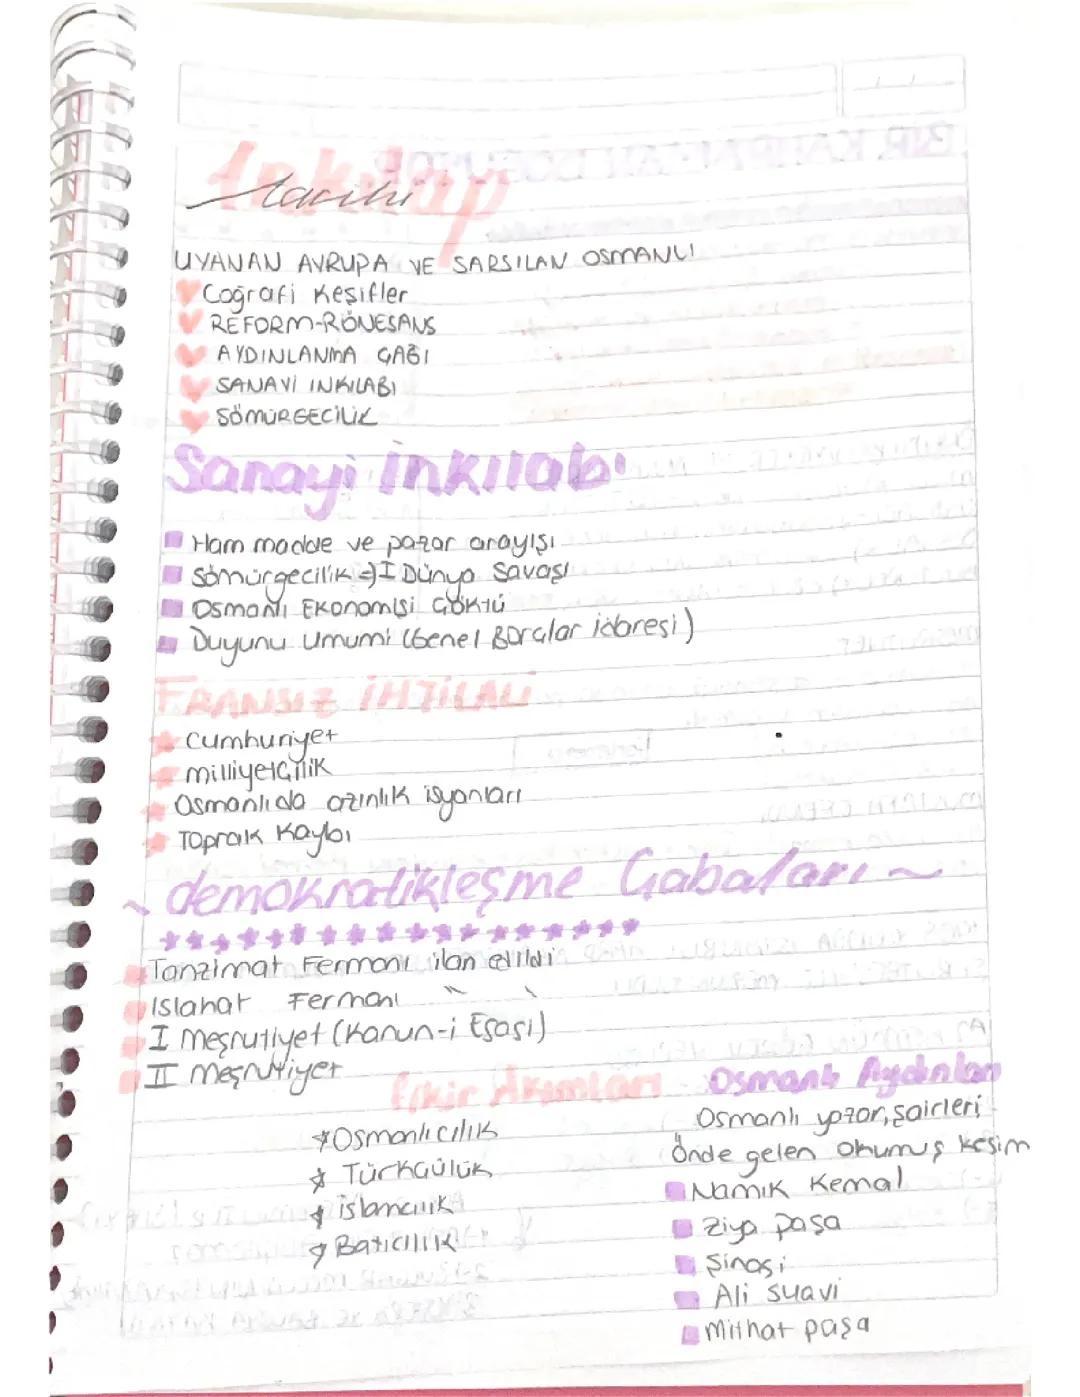 İnkılap
tarihi
UYANAN AVRUPA VE SARSILAN OSMANLI
Coğrafi Keşifler
REFORM-RÖNESANS
AYDINLANMA ÇAĞI
SANAYİ INKILABI
SÖMÜRGECİLİK
Sanayi İnkılabı
Ham madde ve pazar arayışı
Sömürgecilik => I Dünya Savaşı
Osmanlı Ekonomisi Çöktü
Duyunu Umumi (Genel Borçlar idaresi)
FRANSIZ İHTİLALİ
Cumhuriyet
milliyetçilik
Osmanlıda azınlık isyanları
Toprak Kaybı
~ demokratikleşme Çabaları ~
Tanzimat Fermanı ilan edildi
Islahat Fermanı " "
I Meşrutiyet (Kanun-i Esası)
II Meşrutiyet
Fikir Akımları
Osmanlıcılık
Türkçülük
islamcılık
Batıcılık
Osmanlı Aydınları
Osmanlı yazar, şairleri
Önde gelen okumuş kesim
Namık Kemal
Ziya paşa
Şinasi
Ali suavi
Mithat paşa